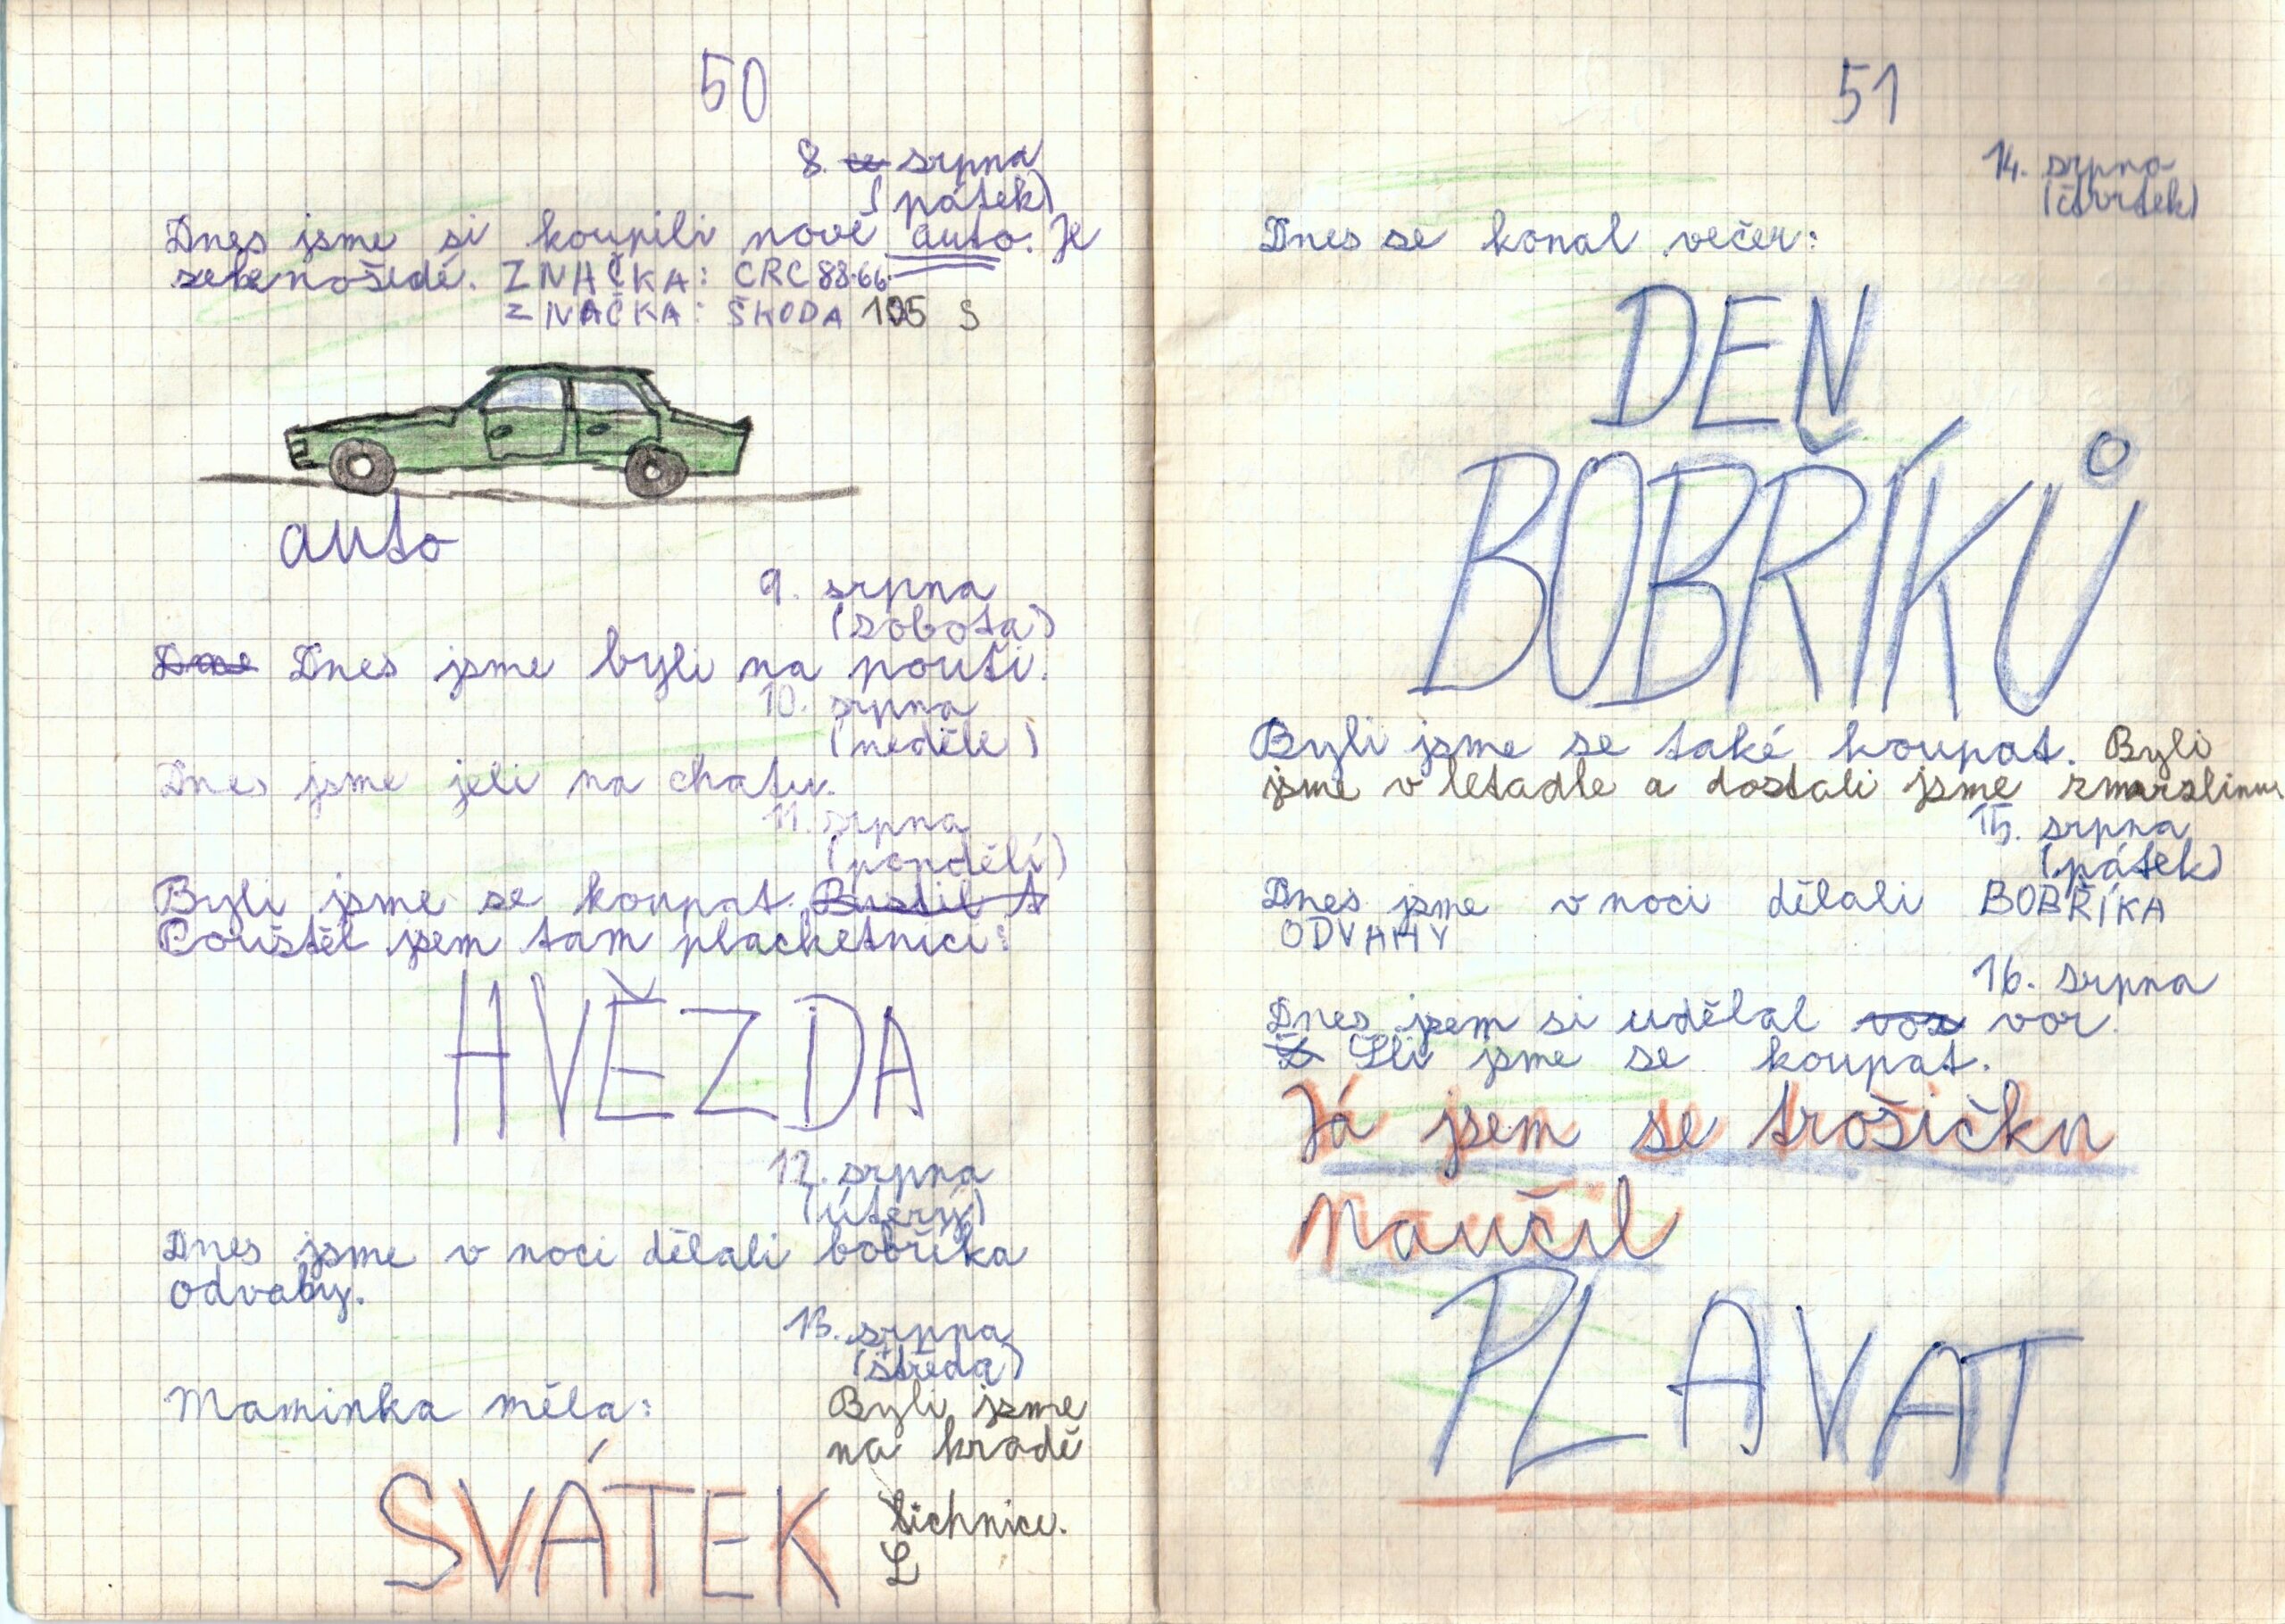 50
8. srpna
(pátek)
Dnes jsme si koupili nové auto. Je
zelenošedé. ZNAČKA: CRC 88-66
ZNAČKA: ŠKODA 105 S
auto
9. srpna
(sobota)
Dnes jsme byli na pouti.
10. srpna
(neděle)
Dnes jsme jeli na chatu.
11. srpna
(pondělí)
Byli jsme se koupat.
Pouštěl jsem tam plachetnici:
HVĚZDA
12. srpna
(úterý)
Dnes jsme v noci dělali bobříka
odvahy.
13. srpna
(středa)
Maminka měla:
SVÁTEK
Byli jsme
na hradě
lichnice.
L
51
14. srpna
(čtvrtek)
Dnes se konal večer:
DEŇ
BOBŘÍKŮ
Byli jsme se také koupat. Byli
jsme v letadle a dostali jsme zmrzlinu
15. srpna
(pátek)
Dnes jsme v noci dělali BOBŘÍKA
ODVAHY
16. srpna
Dnes jsem si udělal vor.
Šli jsme se koupat.
Já jsem se trošičku
naučil
PLAVAT